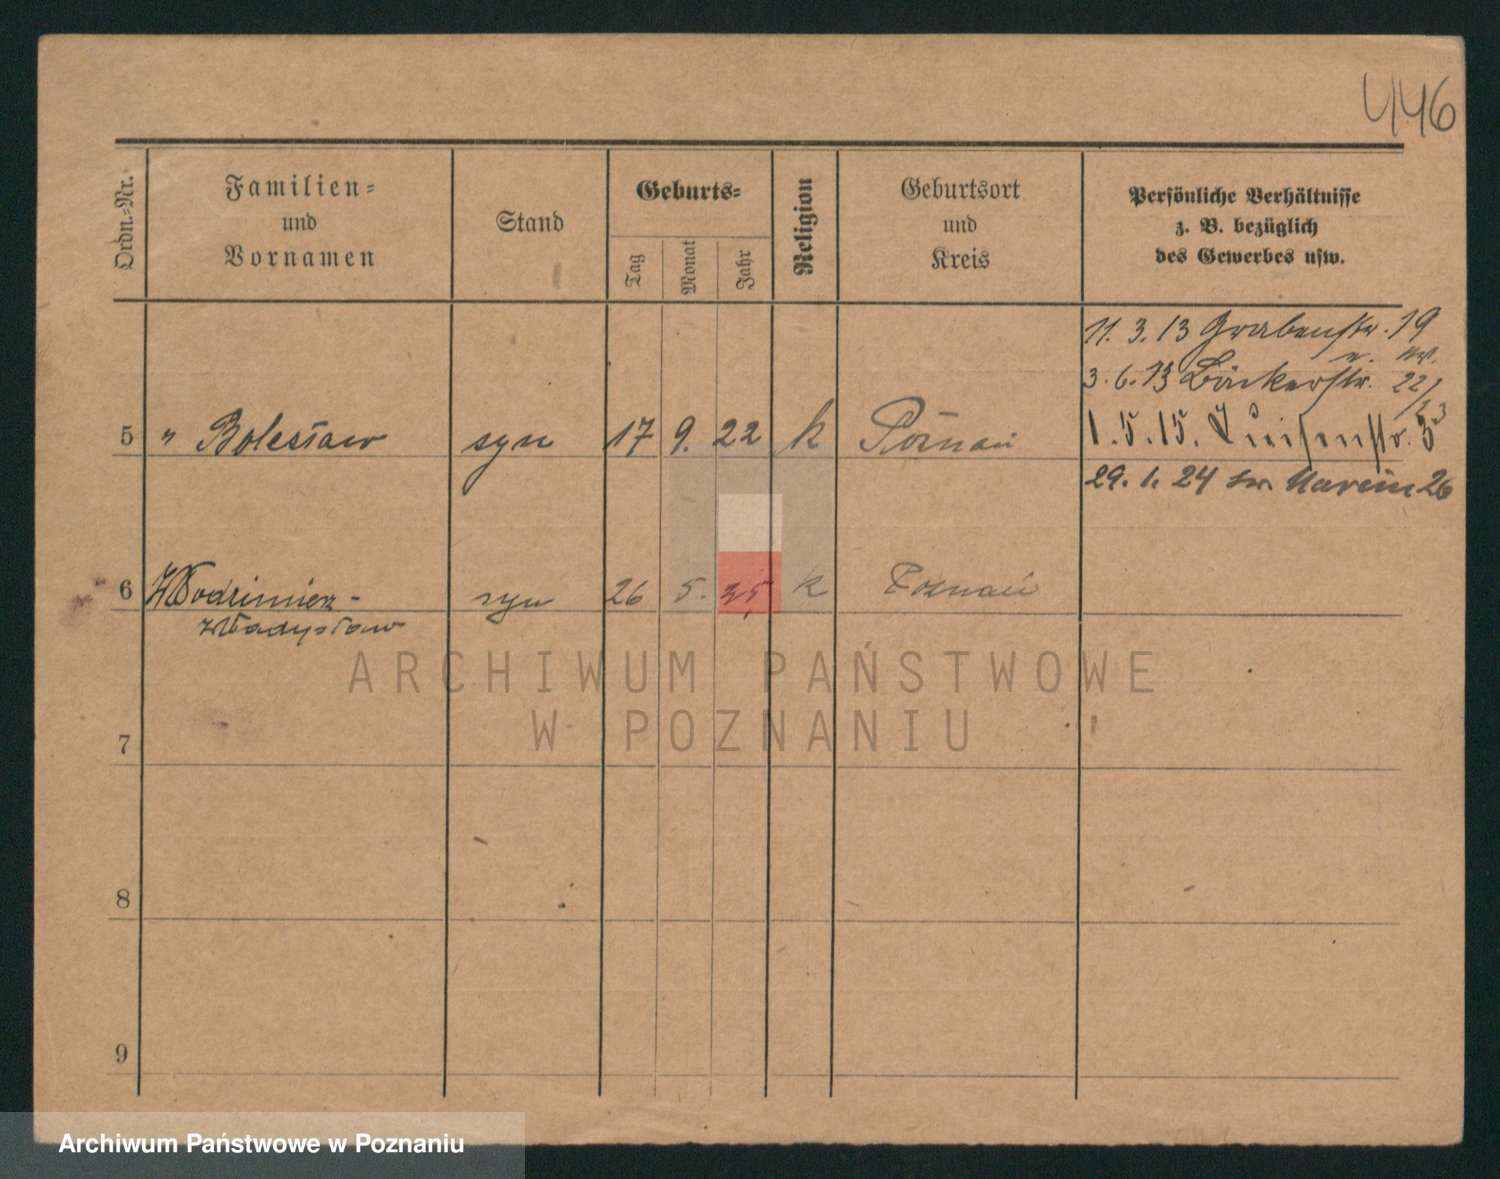 446
Ordn.=Nr.
Familien=
und
Vornamen
Stand
Geburts=
Tag
Monat
Jahr
Religion
Geburtsort
und
Kreis
Persönliche Verhältnisse
z. B. bezüglich
des Gewerbes usw.
11. 3. 13 Grabenstr. 19
3. 6. 13 Bäckerstr. 22/23
5 " Bolesław syn 17 9. 22 k Poznań
1. 5. 15.
29. 1. 24 św. Marcin 26
6 Włodzimierz - syn 26 5. k Poznań
Władysław
7
8
9
ARCHIWUM PAŃSTWOWE
W POZNANIU
Archiwum Państwowe w Poznaniu